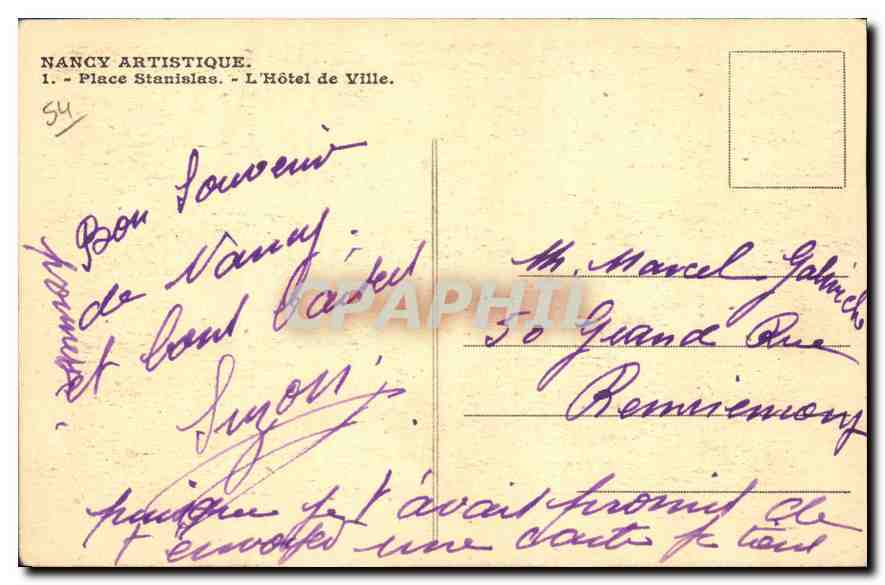 NANCY ARTISTIQUE.
1. - Place Stanislas. - L'Hôtel de Ville.
54
Bon Souvenir
de Nancy.
et bons baisers
Suzon
puisque je t'avait promis de
t'envoyer une carte je tiens
promesse.
M. Marcel Galmiche
50 Grand Rue
Remiremont
CPAPHIL